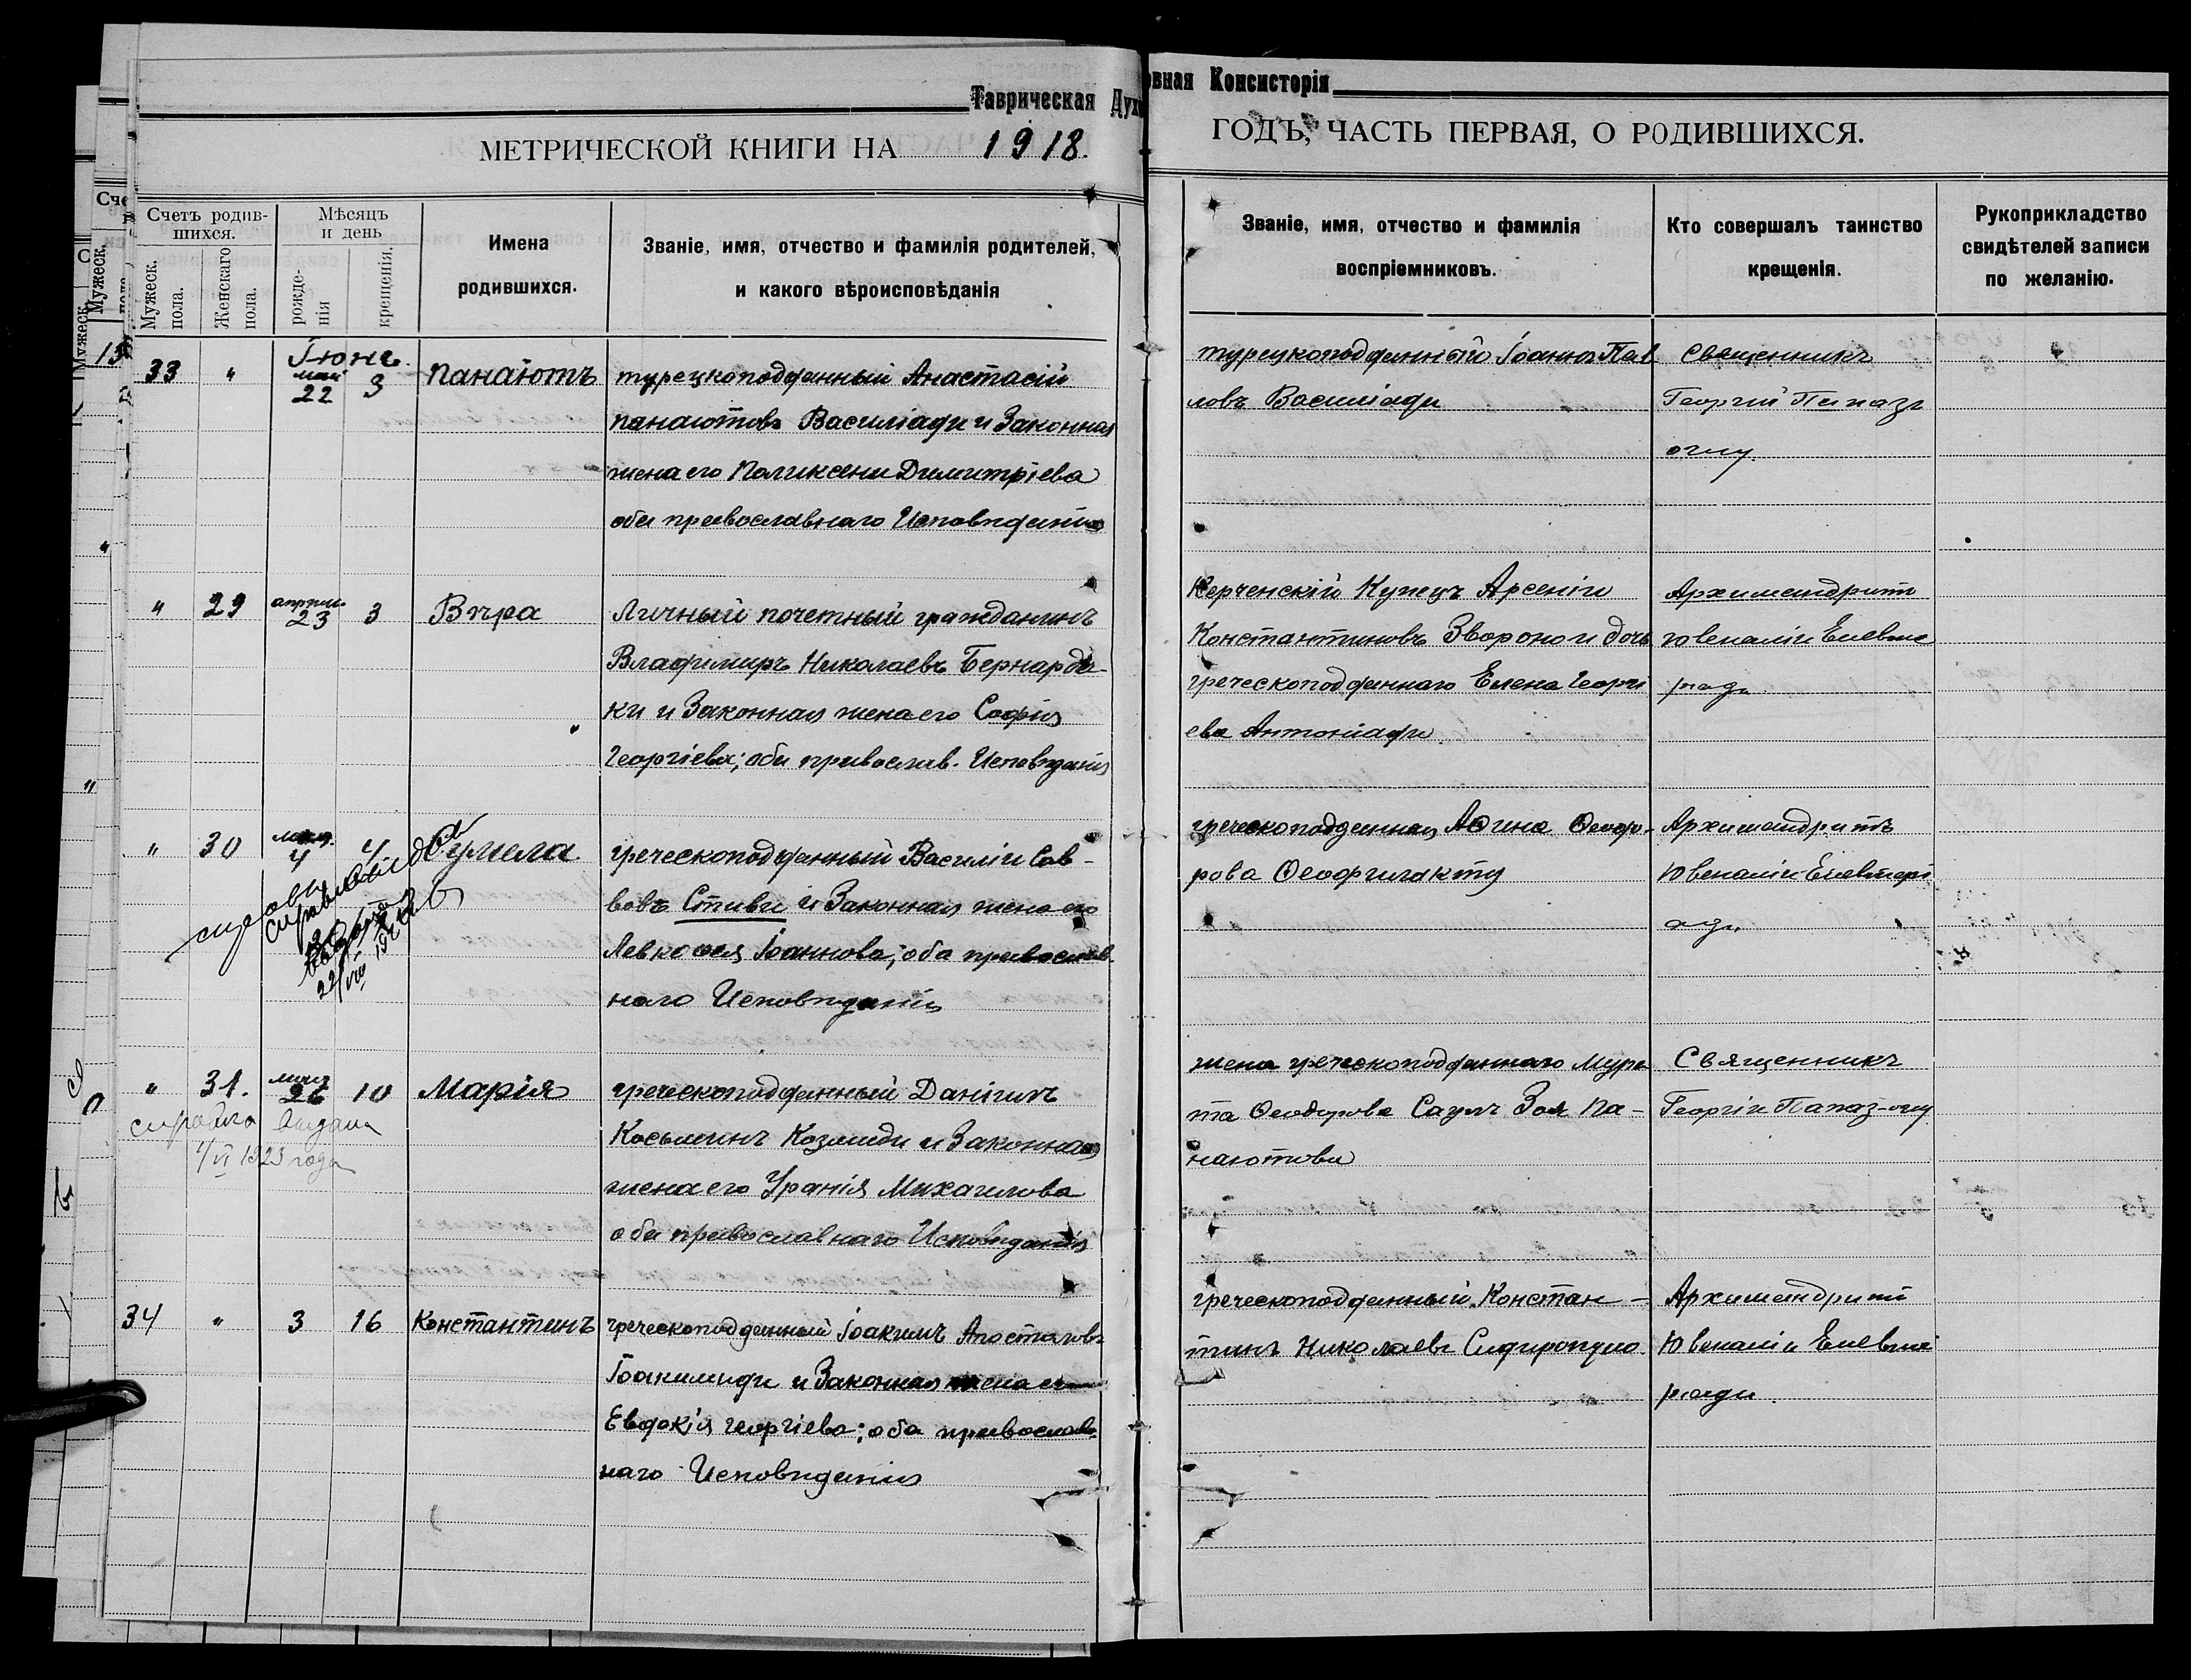 Таврическая Духовная Консисторія
МЕТРИЧЕСКОЙ КНИГИ НА 1918. ГОДЪ, ЧАСТЬ ПЕРВАЯ, О РОДИВШИХСЯ.
Счетъ родив-
шихся.
Мужеск.
пола.
Женскаго
пола.
Мѣсяцъ
и день
рожде-
нія
крещенія.
Имена
родившихся.
Званіе, имя, отчество и фамилія родителей,
и какого вѣроисповѣданія
Званіе, имя, отчество и фамилія
воспріемниковъ.
Кто совершалъ таинство
крещенія.
Рукоприкладство
свидѣтелей записи
по желанію.
Іюнь
33 " май 22 3 Панаіотъ
турецкоподданный Анастасій
Панаіотовъ Василіади и Законная
жена его Поликсени Димитріева
оба православнаго Исповѣданія
турецкоподданный Іоаннъ Пав
ловъ Василіади
Священникъ
Георгій Папазъ
оглу
" 29 апрѣл. 23 3 Вѣра
Личный почетный гражданинъ
Владимиръ Николаевъ Бернарда-
ки и Законная жена его Софія
Георгіева; оба православ. Исповѣданія
Керченскій Купецъ Арсеній
Константиновъ Звороно и дочь
греческоподданнаго Елена Георгі
ева Антоніади
Архимандритъ
Ювеналій Елевѳе
ріади
" 30 мая 4 4 Сумела
греческоподданный Василій Сав-
вовъ Стиви и Законная жена его
Левкоѳея Іоаннова; оба православ-
наго Исповѣданія
греческоподданная Аѳина Ѳеодо-
рова Ѳеофилакту
Архимандритъ
Ювеналій Елевѳері
ади
22/VIII
" 31. мая 26 10 Марія
справка выдана
1/VI 1923 года
греческоподданный Даніилъ
Косьминъ Козмиди и Законная
жена его Уранія Михаилова
оба православнаго Исповѣданія
жена греческоподданнаго Мура
та Ѳеодорова Саулъ Зоя Па-
наіотова
Священникъ
Георгій Папаз-оглу
34 " 3 16 Константинъ
греческоподданный Іоакимъ Апостоловъ
Іоакимиди и Законная жена его
Евдокія Георгіева; оба православ-
наго Исповѣданія
греческоподданный Констан-
тинъ Николаевъ Сидиропуло
Архимандритъ
Ювеналій Елевѳе
ріади